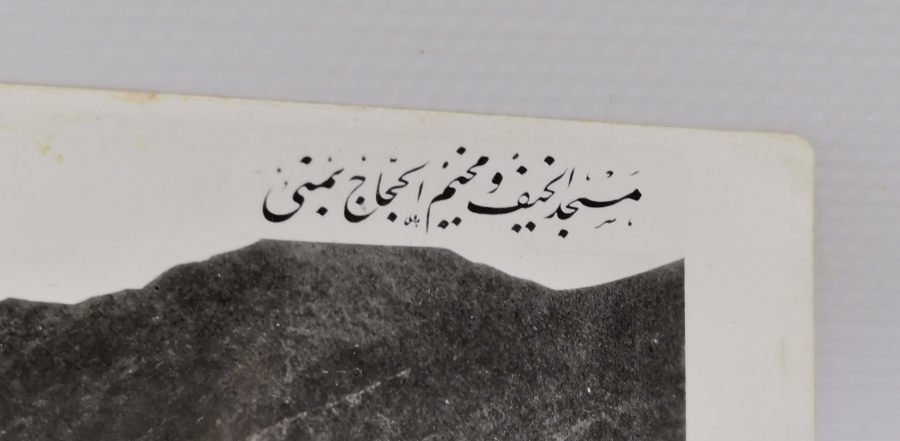 مسجد الخيف ومخيم الحجاج بمنى